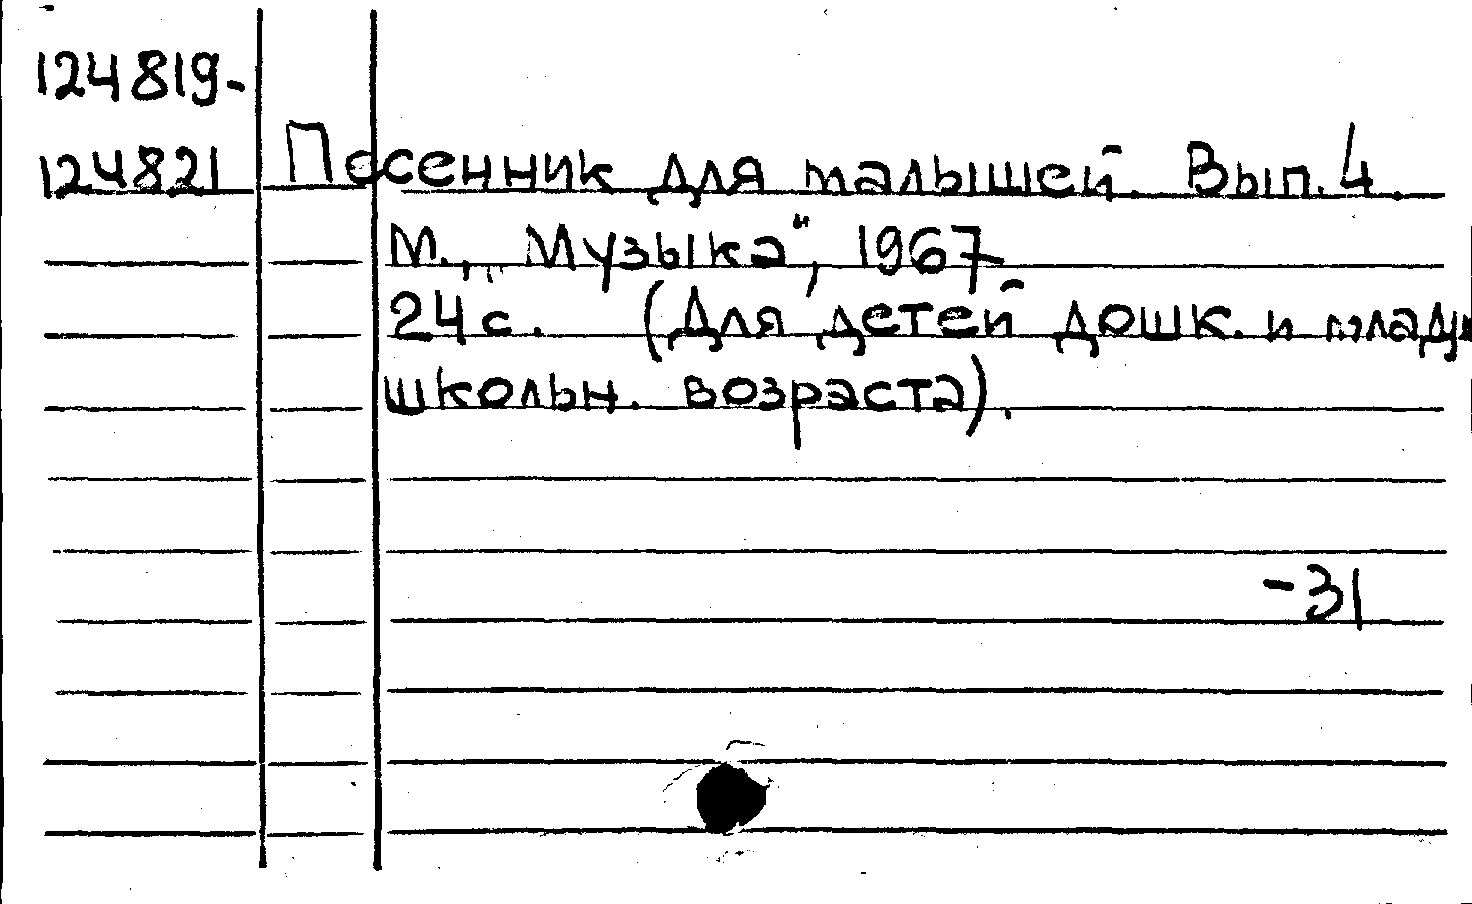 124819-
124821 Песенник для малышей. Вып. 4.
М., „Музыка", 1967
24 с. (Для детей дошк. и младш
школьн. возраста).
-31